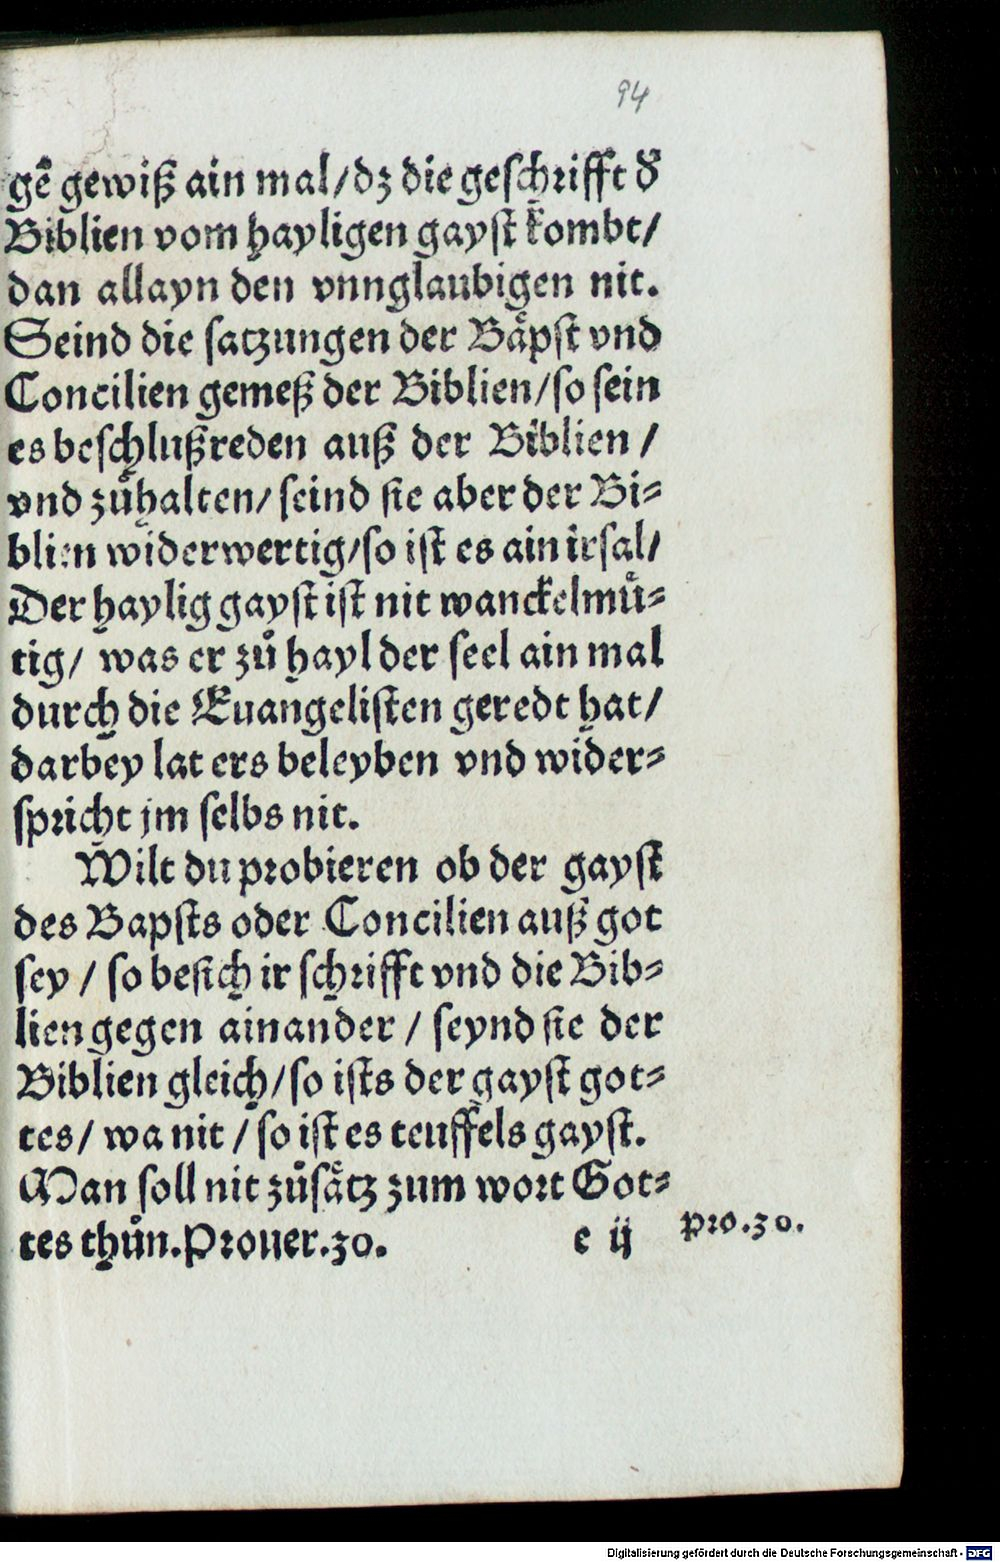 94
gē gewiß ain mal/dz die geschrifft d̕
Biblien vom hayligen gayst kombt/
dan allayn den vnnglaubigen nit.
Seind die satzungen der Baͤpst vnd
Concilien gemeß der Biblien/so sein
es beschlußreden auß der Biblien /
vnd zuͦhalten/ seind sie aber der Bi⸗
blien widerwertig/so ist es ain irsal/
Der haylig gayst ist nit wanckelmuͤ⸗
tig/ was er zuͦ hayl der seel ain mal
durch die Euangelisten geredt hat/
darbey lat ers beleyben vnd wider⸗
spricht jm selbs nit.
Wilt du probieren ob der gayst
des Bapsts oder Concilien auß got
sey / so besich ir schrifft vnd die Bib⸗
lien gegen ainander / seynd sie der
Biblien gleich/so ists der gayst got⸗
tes/ wa nit / so ist es teuffels gayst.
Man soll nit zuͦsaͤtz zum wort Got⸗
tes thuͦn.Prouer.30. e ij
pro.30.
Digitalisierung gefördert durch die Deutsche Forschungsgemeinschaft - DFG